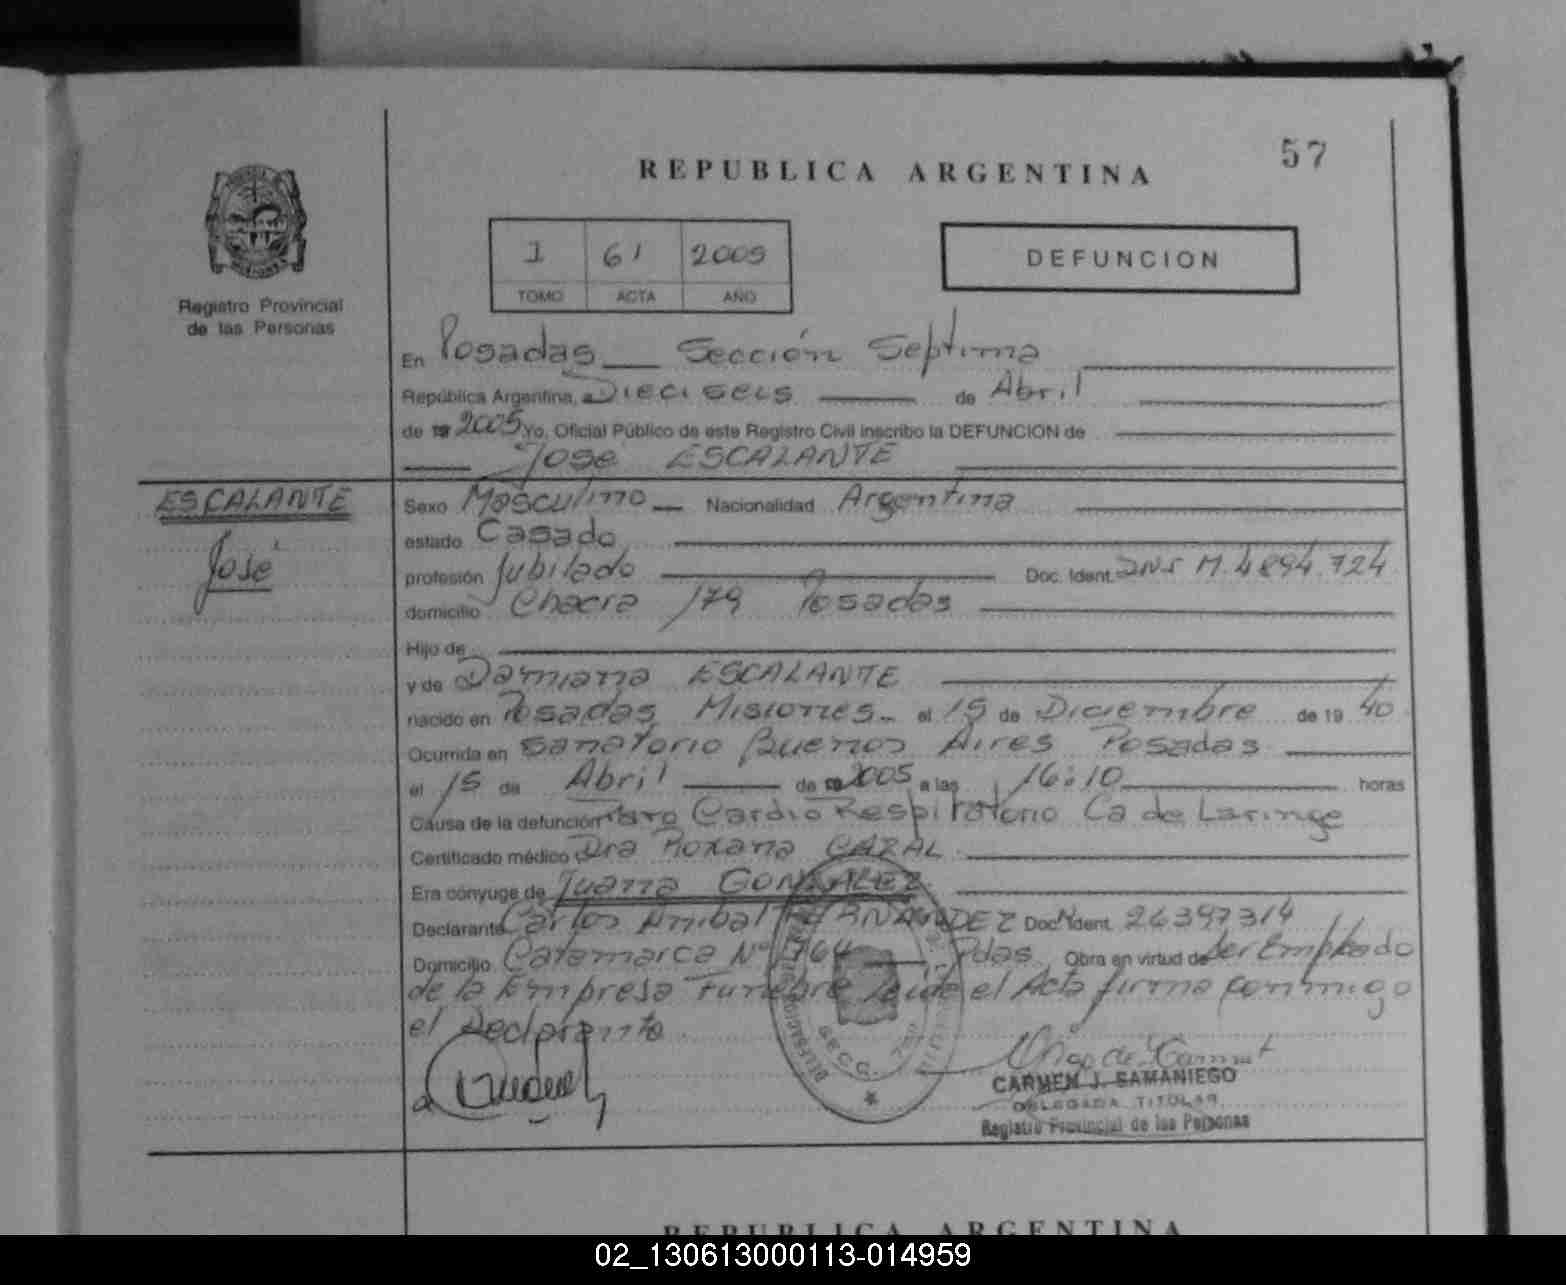 57
REPUBLICA ARGENTINA
I 61 2005
TOMO ACTA AÑO
DEFUNCION
Registro Provincial
de las Personas
En Posadas Sección Septima
República Argentina, a Dieciseis de Abril
de 19 2005 Yo, Oficial Público de este Registro Civil inscribo la DEFUNCION de
Jose ESCALANTE
ESCALANTE
José
Sexo Masculino Nacionalidad Argentina
estado Casado
profesión Jubilado Doc. Ident. DNI M. 4894.724
domicilio Chacra 179 Posadas
Hijo de
y de Damiana ESCALANTE
nacido en Posadas Misiones el 15 de Diciembre de 19 40
Ocurrida en Sanatorio Buenos Aires Posadas
el 15 de Abril de 19 2005 a las 16:10 horas
Causa de la defunción Paro Cardio Respiratorio Ca de Laringe
Certificado médico Dra Roxana CAZAL
Era cónyuge de Juana GONZALEZ
Declarante Carlos Anibal FERNANDEZ Doc. Ident. 24397314
Domicilio Catamarca Nº 1764 Pdas Obra en virtud de Ser Empleado
de la Empresa Funebre Leida el Acta firma conmigo
el Declarante
CARMEN J. SAMANIEGO
DELEGADA TITULAR
Registro Provincial de las Personas
REPUBLICA ARGENTINA
02_130613000113-014959